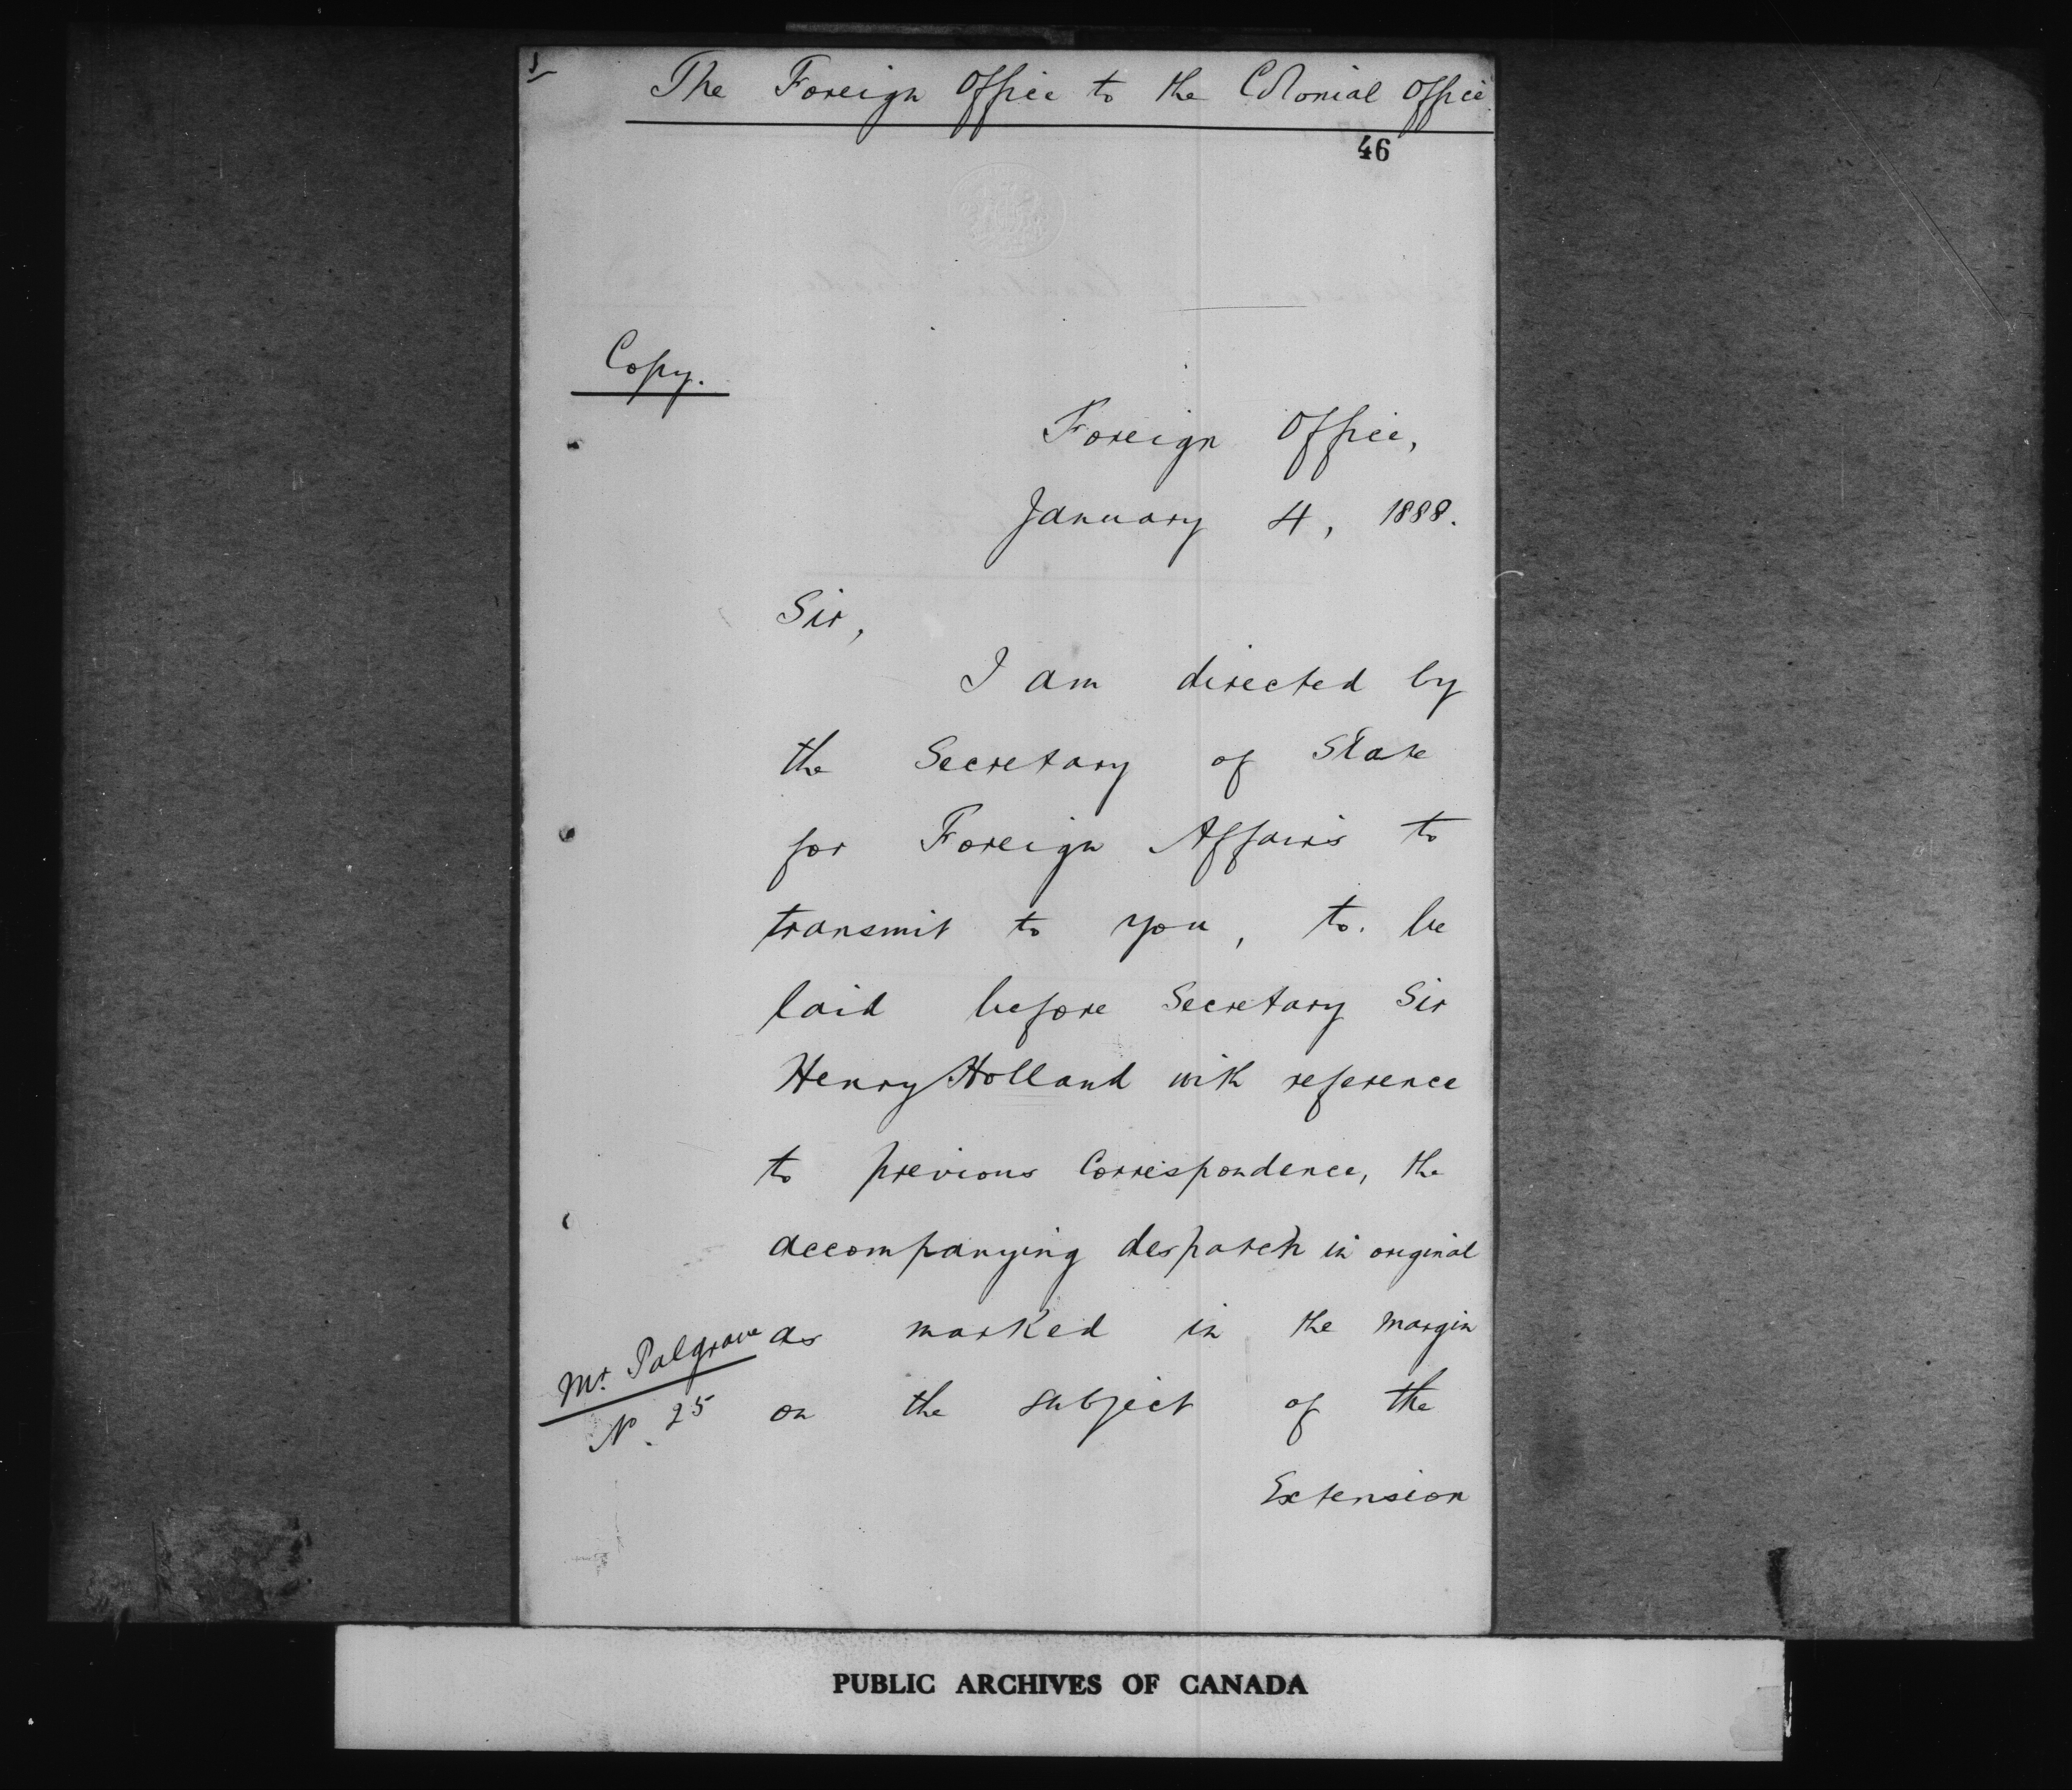 The Foreign Office to the Colonial Office.
46
Copy.
Foreign Office,
January 4, 1888.
Sir,
I am directed by
the Secretary of State
for Foreign Affairs to
transmit to you, to be
laid before Secretary Sir
Henry Holland with reference
to previous Correspondence, the
accompanying despatch in original
as marked in the margin
Mr. Palgrave
No. 25
on the subject of the
Extension
PUBLIC ARCHIVES OF CANADA